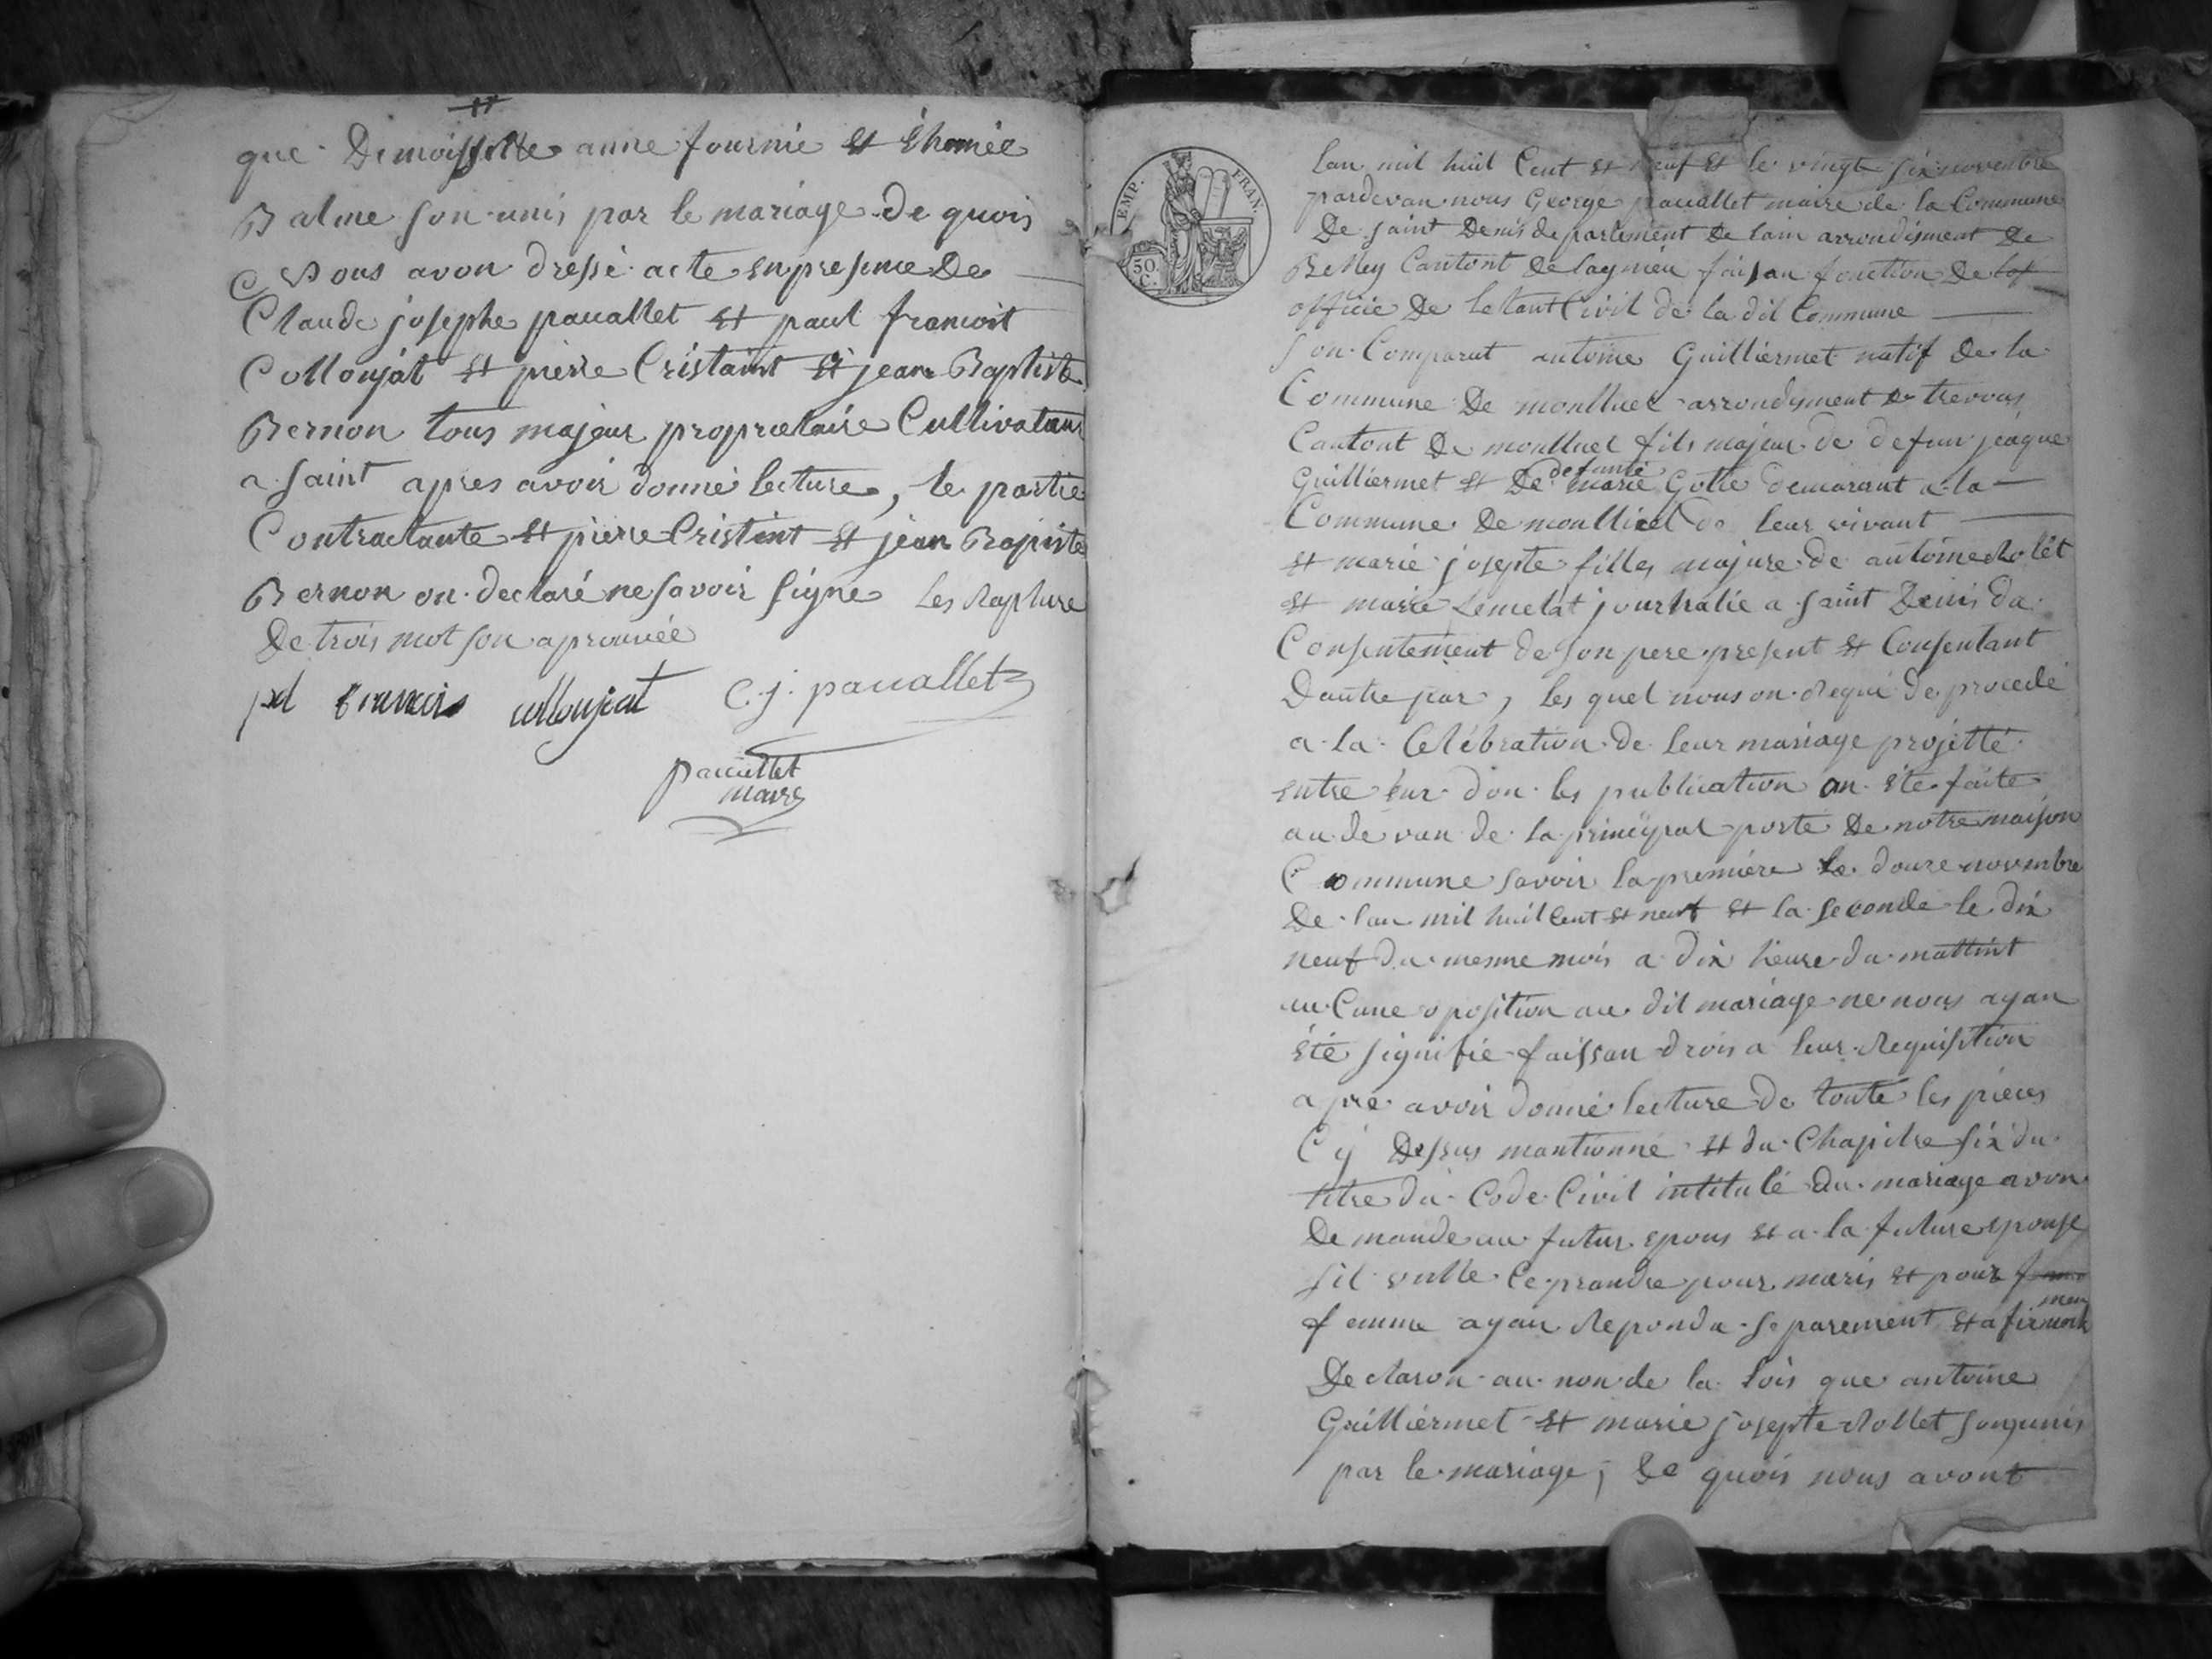 que Demoisselle anne fournie et Ehemée
Balme son unis par le mariage de quois
Nous avon dressé acte en presence De
Claude josephe pauallet et paul francoit
Colloujat et pierre Cristaint et jean Baptiste
Bernon tous majeur proprietaire Cultivateur
a saint apres avoir donné lecture, le partie
Contractante et pierre Cristint et jean Bapiste
Bernon on declaré ne savoir signe les Rapture
De trois mot son aprouvée
pd francois colloujat C. j. pauallet
pauallet
maire
EMP. FRAN.
50.
C.
lan mil huit Cent et neuf et le vingt six novembre
pardevan nous George pauallet maire de la Commune
De saint Denis departement De lain arrondisment De
Belley Cantont De lagnieu faisan fonction De lof
officie De letant Civil de la dit Commune
son Comparut antoine Guilliermet natif De la
Commune De monlluel arrondisment De trevous
Cantont De monlluel fils majeur de defun jeaque
defunte
Guilliermet et De marie Gotte demarant a la
Commune De monlliel de leur vivant
et marie josepte filles majure de antoine Rolet
et marie Lemelat journalié a saint Denis du
Consentement de son pere present et Consentant
Dautre par, les quel nous on Requi de procedé
a la Celébration de leur mariage projetté
entre eur don les publication on éte faite
au de van de la principal porte De notre maison
Commune savoir la premiére le douze novembre
De lan mil huit Cent et neuf et la seconde le dix
neuf du mesme mois a dix heure du mattint
au Cune oposition au dit mariage ne nous ayan
été signifié faissan drois a leur Requisition
apré avoir donné lecture de touté les pieces
Cy Desus mantionné et du Chapitre six du
titre du Code Civil intitulé du mariage avon
Demande au futur epous et a la future epouse
sil vulle Ce prandre pour maris et pour
femme ayan Repondu separement et afirmati
men
Declaron au non de la lois que antoine
Guilliérmet et marie josepte Rollet son unis
par le mariage, de quois nous avont